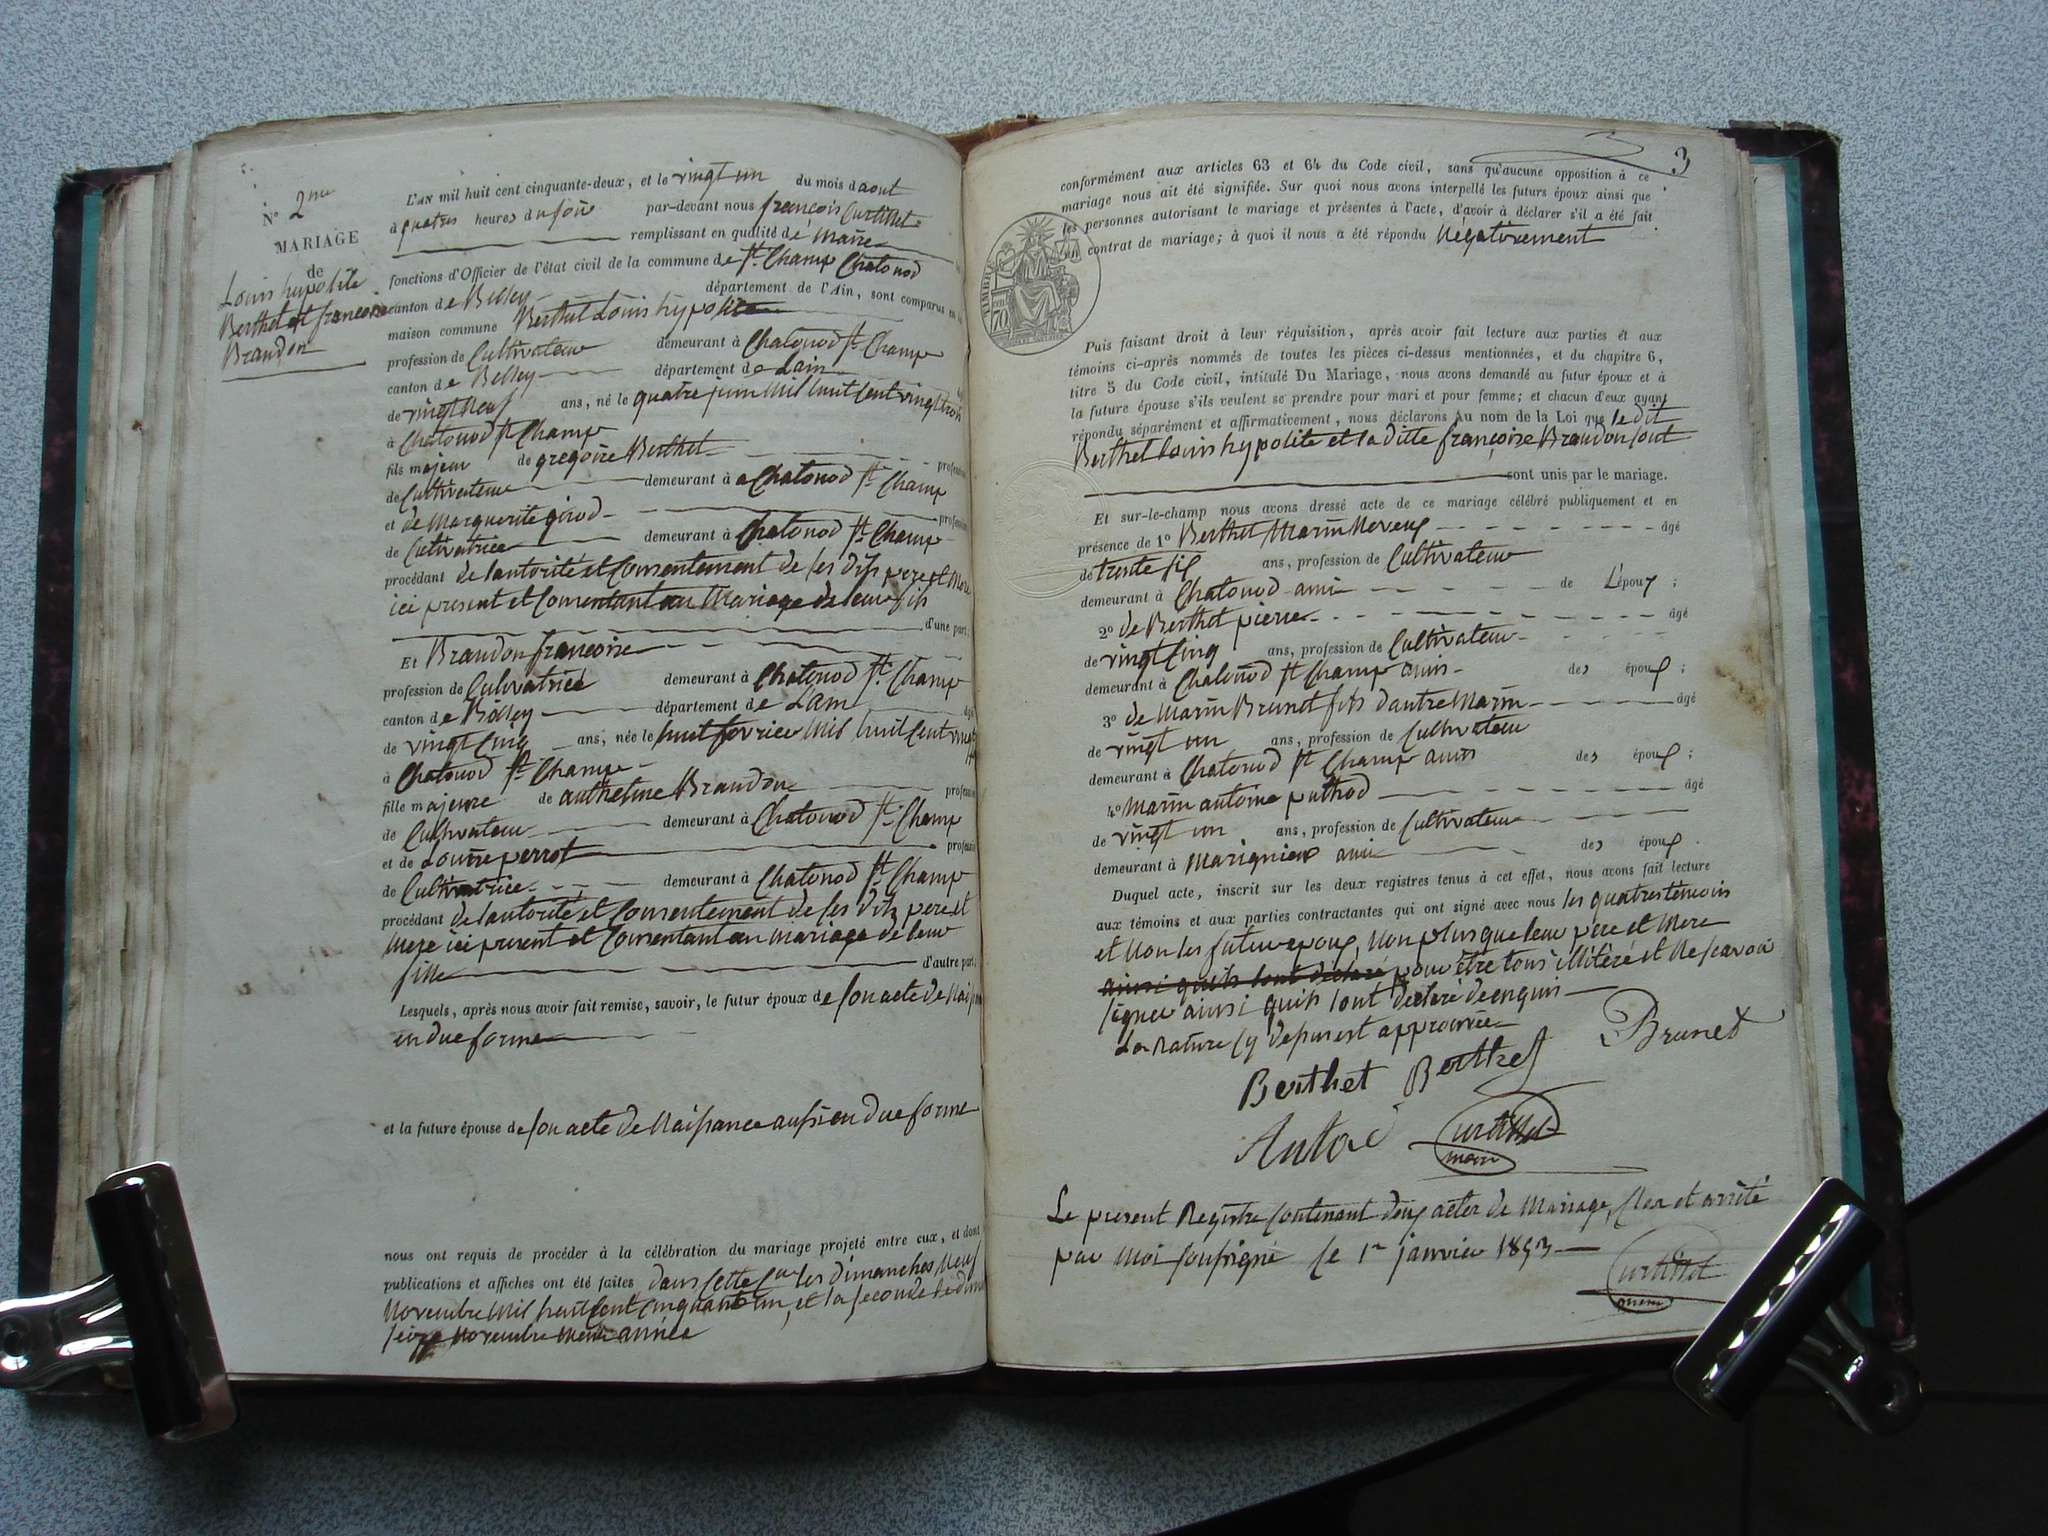 N° 2me
MARIAGE
de
Louis hypolite
Berthet et francoise
Brandon
L'AN mil huit cent cinquante-deux, et le vingt un du mois d'aout
à quatres heures du soir par-devant nous françois Curtillet
remplissant en qualité de Maire
fonctions d'Officier de l'état civil de la commune de St. Champ Chatonod
canton de Belley département de l'Ain, sont comparus en
maison commune Berthet Louis hypolite
profession de Cultivateur demeurant à Chatonod St. Champ
canton de Belley département de Lain
de vingt Neuf ans, né le quatre juin Mil huit Cent vingt trois
à Chatonod St Champ
fils majeur de gregoire Berthet profession
de Cultivateur demeurant à a Chatonod St. Champ
et de Marguerite girod profession
de Cultivatrice demeurant à Chatonod St. Champ
procédant de lautorité et Consentement de ses dits pere et Mere
ici present et Consentant au Mariage de leur fils
d'une part;
Et Brandon francoise
profession de Culvatrice demeurant à Chatonod St. Champ
canton de Belley département de Lain âgé
de vingt Cinq ans, née le huit fevrier Mil huit Cent vingt
à Chatonod St. Champ
fille majeure de anthelme Brandon profession
de Cultivateur demeurant à Chatonod St. Champ
et de Louise perrot profession
de Cultivatrice demeurant à Chatonod St. Champ
procédant de lautorité et Consentement de ses dits pere et
Mere ici present et Consentant au Mariage de leur
fille d'autre part;
Lesquels, après nous avoir fait remise, savoir, le futur époux de son acte de Naissance
en due forme
et la future épouse de son acte de Naissance aussi en due forme
nous ont requis de procéder à la célébration du mariage projeté entre eux, et dont
publications et affiches ont été faites dans Cette Cne les dimanches Neuf
Novembre Mil huit Cent Cinquante un, et la seconde le dimanche
seize Novembre Meme année
3
conformément aux articles 63 et 64 du Code civil, sans qu'aucune opposition à ce
mariage nous ait été signifiée. Sur quoi nous avons interpellé les futurs époux ainsi que
les personnes autorisant le mariage et présentes à l'acte, d'avoir à déclarer s'il a été fait
contrat de mariage; à quoi il nous a été répondu Négativement
TIMBRE
70
Puis faisant droit à leur réquisition, après avoir fait lecture aux parties et aux
témoins ci-après nommés de toutes les pièces ci-dessus mentionnées, et du chapitre 6,
titre 5 du Code civil, intitulé Du Mariage, nous avons demandé au futur époux et à
la future épouse s'ils veulent se prendre pour mari et pour femme; et chacun d'eux ayant
répondu séparément et affirmativement, nous déclarons au nom de la Loi que le dit
Berthet Louis hypolite et la ditte françoise Brandon sont
sont unis par le mariage.
Et sur-le-champ nous avons dressé acte de ce mariage célébré publiquement et en
présence de 1° Berthet Marin Neveux âgé
de trente six ans, profession de Cultivateur
demeurant à Chatonod ami de L'époux;
2° de Berthet pierre âgé
de vingt Cinq ans, profession de Cultivateur
demeurant à Chatonod St Champ amis des époux;
3° de Marin Brunet fils dautre Marin âgé
de vingt un ans, profession de Cultivateur
demeurant à Chatonod St Champ amis des époux;
4° Marin antoine puthod âgé
de vingt un ans, profession de Cultivateur
demeurant à Marignieu ami des époux.
Duquel acte, inscrit sur les deux registres tenus à cet effet, nous avons fait lecture
aux témoins et aux parties contractantes qui ont signé avec nous les quatres témoins
et Non les futur epoux, Non plus que leur pere et Mere
ainsi quils lont déclaré pour être tous illitéré et Ne savoir
signer ainsi quils lont declaré de enquis
La Rature cy depuis est approuvée
Berthet Berthet Brunet
Curtillet
maire
Le present Registre Contenant deux actes de Mariage, Clos et arrêté
par Moi soussigné le 1er janvier 1853
Curtillet
maire